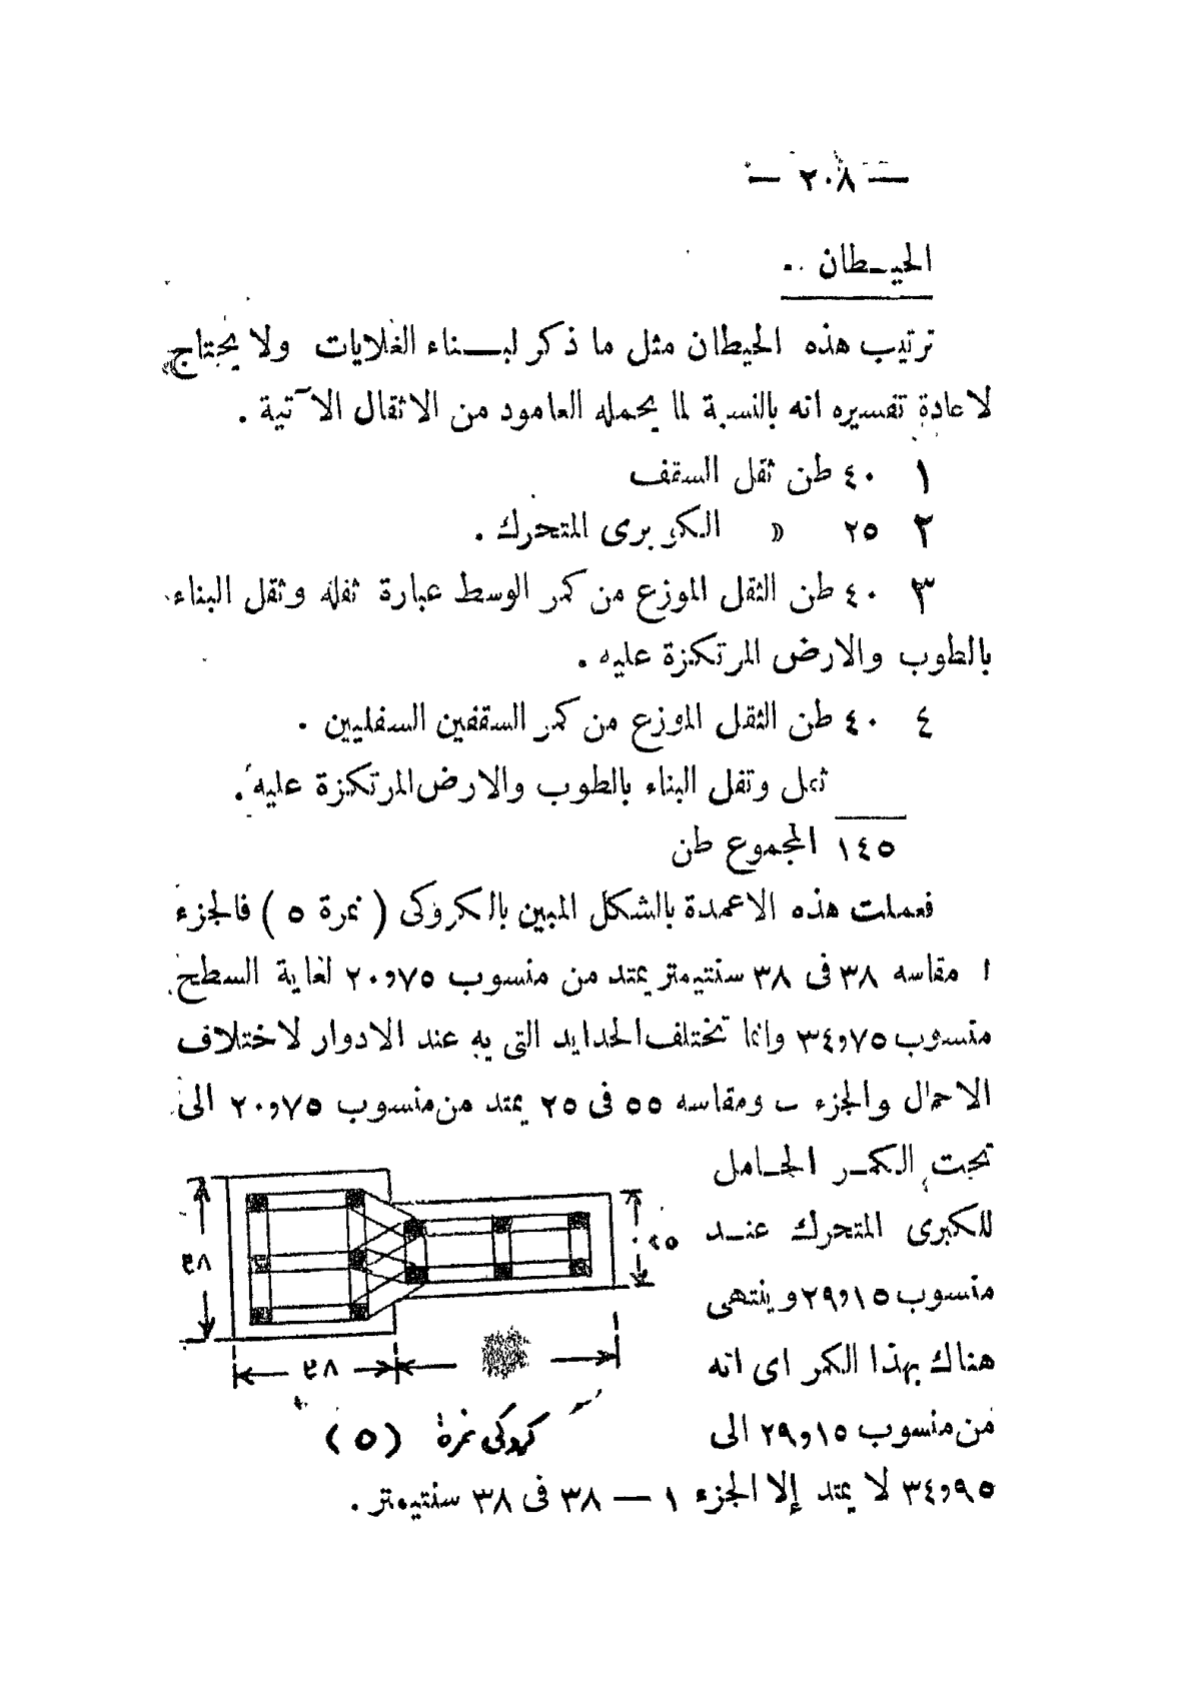 — ٢٠٨ —
الحيـطان ..
ترتيب هذه الحيطان مثل ما ذكر لبـــناء الغلايات ولا يحتاج
لاعادة تفسيره انه بالنسبة لما يحمله العامود من الاثقال الآتية .
١ ٤٠ طن ثقل السقف
٢ ٢٥ » الكوبرى المتحرك .
٣ ٤٠ طن الثقل الموزع من كمر الوسط عبارة ثقله وثقل البناء
بالطوب والارض المرتكزة عليه .
٤ ٤٠ طن الثقل الموزع من كمر السقفين السفليين .
ثقل وتفل البناء بالطوب والارض المرتكزة عليه .
١٤٥ المجموع طن
فعملت هذه الاعمدة بالشكل المبين بالكروكى ( نمرة ٥ ) فالجزء
ا مقاسه ٣٨ فى ٣٨ سنتيمتر يمتد من منسوب ٢٠و٧٥ لغاية السطح
منسوب ٣٤و٧٥ وانما تختلف الحدايد التى به عند الادوار لاختلاف
الاحمال والجزء ب ومقاسه ٥٥ فى ٢٥ يمتد من منسوب ٢٠و٧٥ الى
تحت الكمـر الجـامل
للكبرى المتحرك عنـد
منسوب ٢٩و١٥ وينتهى
هناك بهذا الكمر اى انه
من منسوب ٢٩و١٥ الى
٣٤و٩٥ لا يمتد إلا الجزء ١ — ٣٨ فى ٣٨ سنتيمتر .
كروكى نمرة (٥)